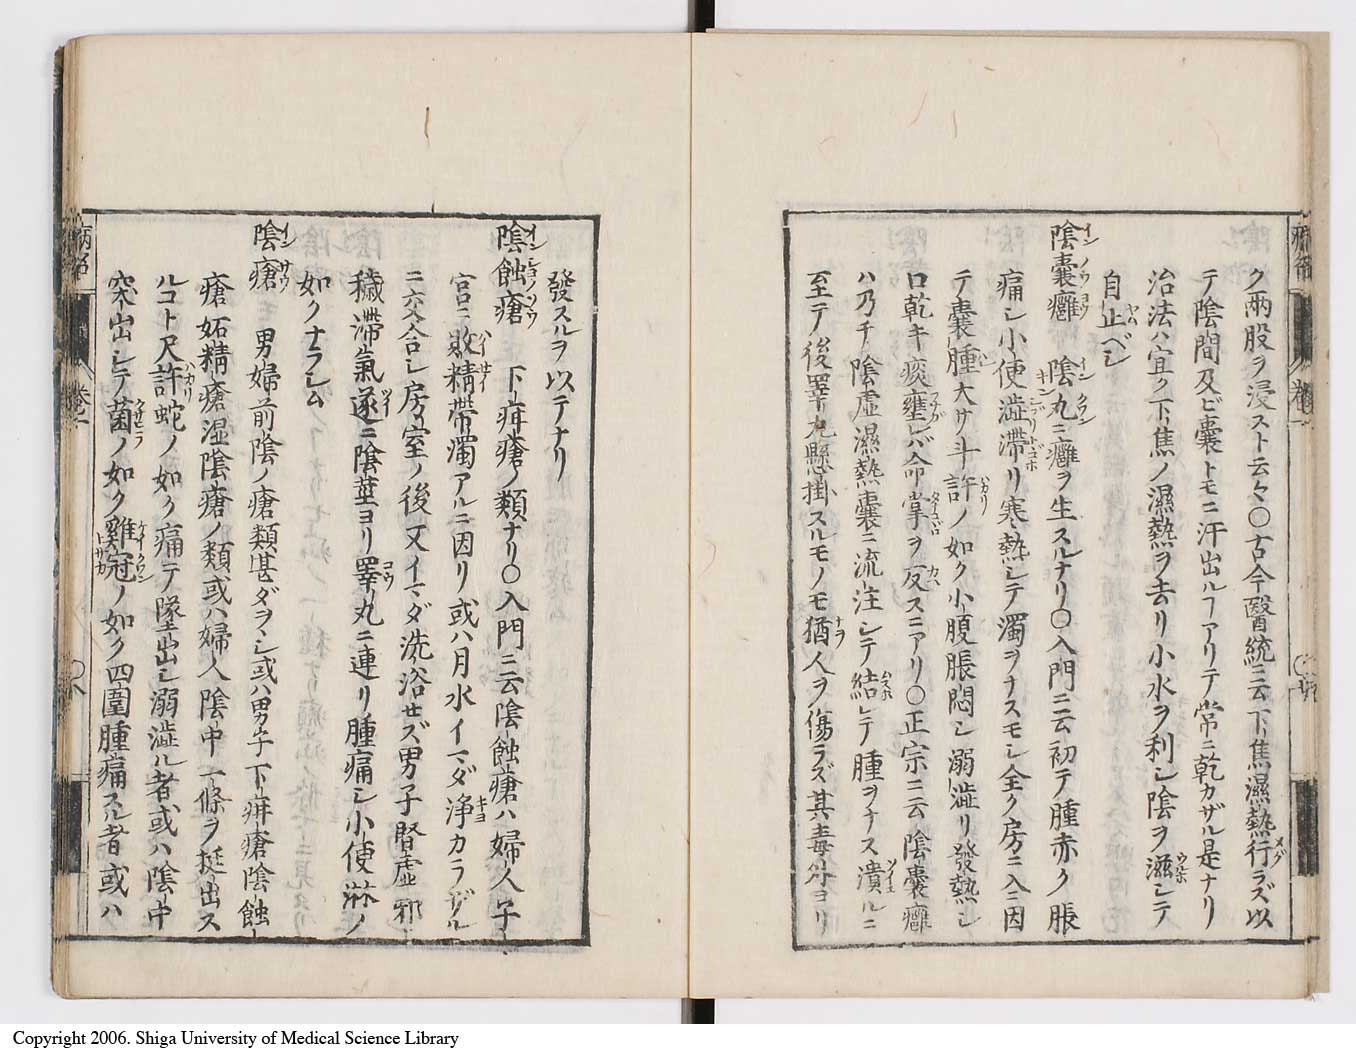 ク兩股ヲ浸スト云々〇古今醫統ニ云下焦濕熱行ラズ以
テ陰間及ビ囊トモニ汗出ルヿアリテ常ニ乾カザル是ナリ
治法ハ宜ク下焦ノ濕熱ヲ去リ小水ヲ利シ陰ヲ滋シテ
自止ベシ
陰囊癰 陰丸ニ癰ヲ生スルナリ〇入門ニ云初テ腫赤ク脹
痛シ小便澁滯リ寒熱シテ濁ヲナスモシ全ク房ニ入ニ因
テ囊腫大サ斗許ノ如ク小腹脹悶シ溺澁リ發熱シ
口乾キ痰壅レバ命掌ヲ反スニアリ〇正宗ニ云陰囊癰
ハ乃チ陰虛濕熱囊ニ流注シテ結シテ腫ヲナス潰ルニ
至テ後睪丸懸掛スルモノモ猶人ヲ傷ラズ其毒外ヨリ
發スルヲ以テナリ
陰蝕瘡 下疳瘡ノ類ナリ〇入門ニ云陰蝕瘡ハ婦人子
宮ニ敗精帶濁アルニ因リ或ハ月水イマダ淨カラザル
ニ交合シ房室ノ後又イマダ洗浴セズ男子腎虛邪
穢滯氣遂ニ陰莖ヨリ睪丸ニ連リ腫痛シ小便淋ノ
如クナラシム
陰瘡 男婦前陰ノ瘡類甚ダヲヽシ或ハ男子下疳瘡陰蝕
瘡妬精瘡湿陰瘡ノ類或ハ婦人陰中一條ヲ挺出ス
ルコト尺許蛇ノ如ク痛テ墜出シ溺澁ル者或ハ陰中
突出シテ菌ノ如ク雞冠ノ如ク四圍腫痛スル者或ハ
Copyright 2006. Shiga University of Medical Science Library